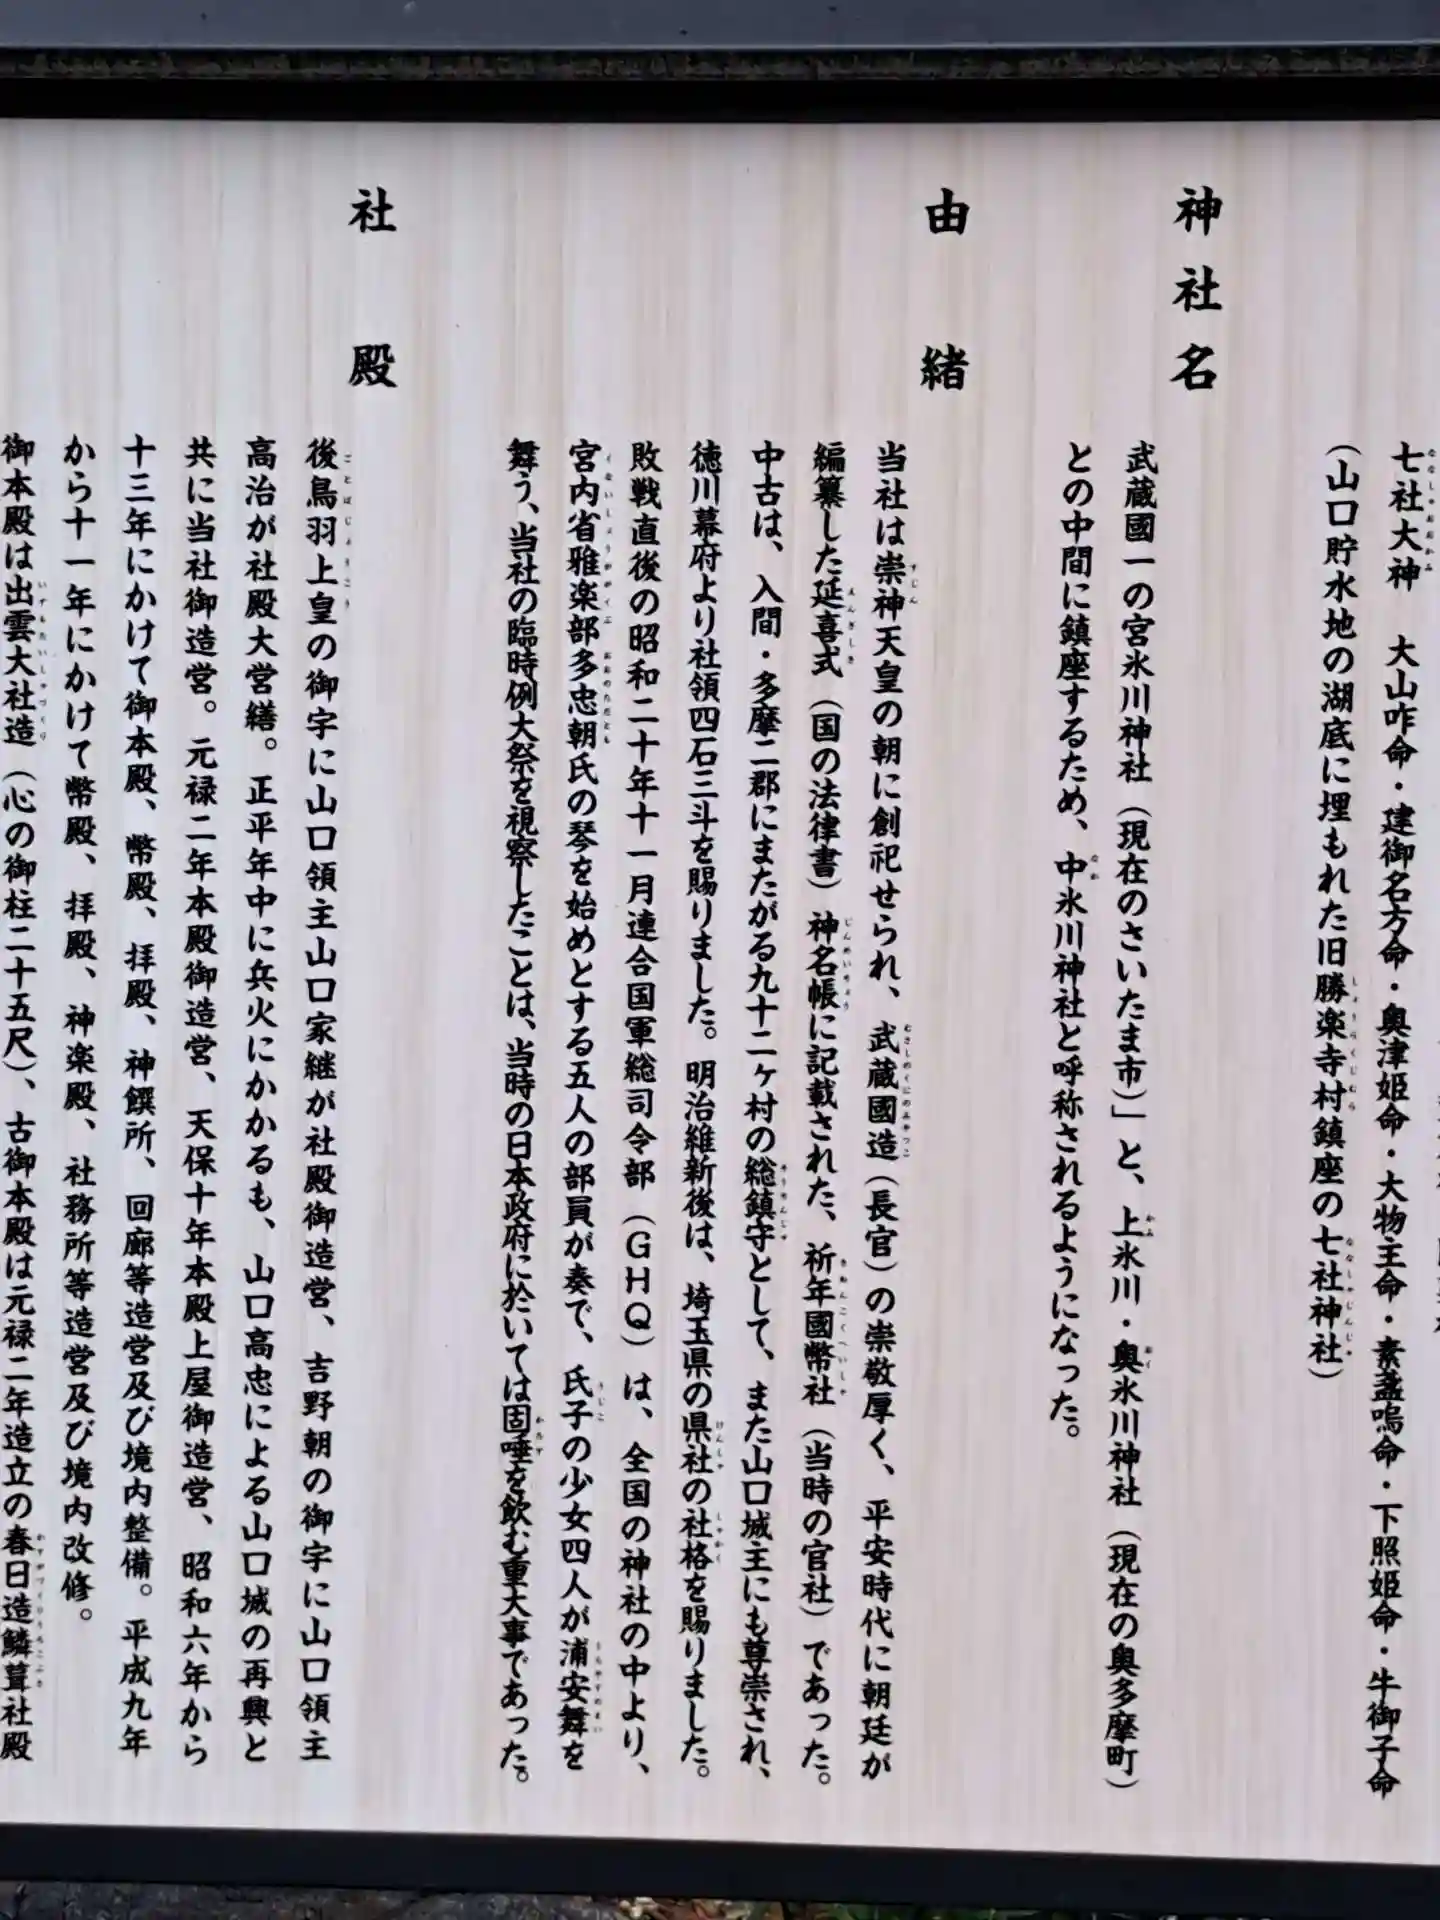 七社大神　大山咋命・建御名方命・奥津姫命・大物主命・素盞嗚命・下照姫命・牛御子命
（山口貯水地の湖底に埋もれた旧勝楽寺村鎮座の七社神社）
神社名
武蔵國一の宮氷川神社（現在のさいたま市）」と、上氷川・奥氷川神社（現在の奥多摩町）
との中間に鎮座するため、中氷川神社と呼称されるようになった。
由緒
当社は崇神天皇の朝に創祀せられ、武蔵國造（長官）の崇敬厚く、平安時代に朝廷が
編纂した延喜式（国の法律書）神名帳に記載された、祈年國幣社（当時の官社）であった。
中古は、入間・多摩二郡にまたがる九十二ヶ村の総鎮守として、また山口城主にも尊崇され、
徳川幕府より社領四石三斗を賜りました。明治維新後は、埼玉県の県社の社格を賜りました。
敗戦直後の昭和二十年十一月連合国軍総司令部（ＧＨＱ）は、全国の神社の中より、
宮内省雅楽部多忠朝氏の琴を始めとする五人の部員が奏で、氏子の少女四人が浦安舞を
舞う、当社の臨時例大祭を視察したことは、当時の日本政府に於いては固唾を飲む重大事であった。
社殿
後鳥羽上皇の御字に山口領主山口家継が社殿御造営、吉野朝の御字に山口領主
高治が社殿大営繕。正平年中に兵火にかかるも、山口高忠による山口城の再興と
共に当社御造営。元禄二年本殿御造営、天保十年本殿上屋御造営、昭和六年から
十三年にかけて御本殿、幣殿、拝殿、神饌所、回廊等造営及び境内整備。平成九年
から十一年にかけて幣殿、拝殿、神楽殿、社務所等造営及び境内改修。
御本殿は出雲大社造（心の御柱二十五尺）、古御本殿は元禄二年造立の春日造鱗葺社殿